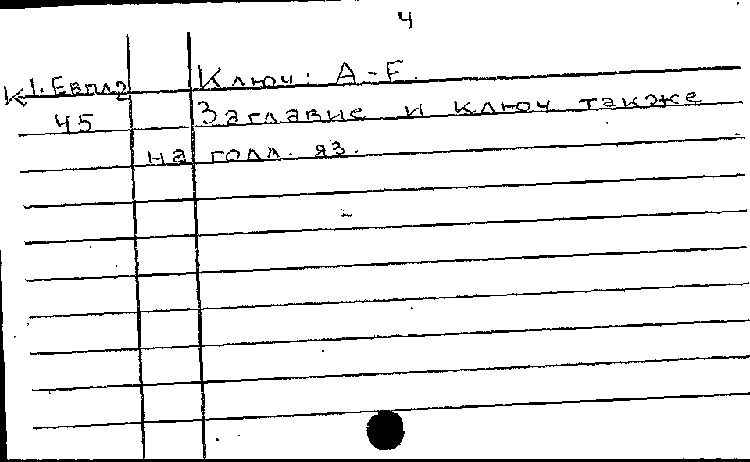 4
К1.Евпл2 Ключ: A-F.
45 Заглавие и ключ также
на голл. яз.